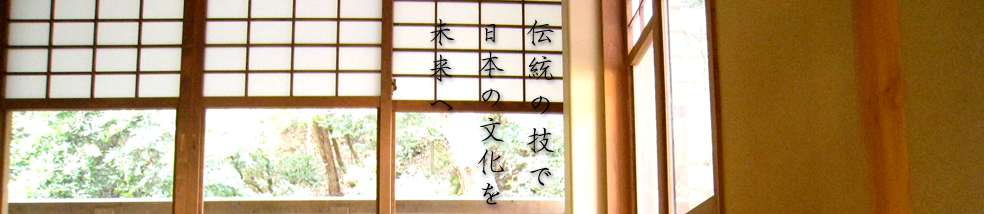 伝統の技で
日本の文化を
未来へ